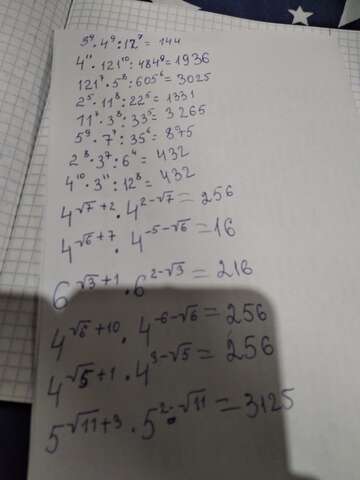 3⁹·4⁹:12⁷=144
4¹¹·121¹⁰:484⁹=1936
121⁷·5⁸:605⁶=3025
2⁵·11⁸:22⁵=1331
11⁷·3⁸:33⁵=3265
5⁹·7⁷:35⁶=875
2⁸·3⁷:6⁴=432
4¹⁰·3¹¹:12⁸=432
4^(√7+2)·4^(2-√7)=256
4^(√6+7)·4^(-5-√6)=16
6^(√3+1)·6^(2-√3)=216
4^(√6+10)·4^(-6-√6)=256
4^(√5+1)·4^(3-√5)=256
5^(√11+3)·5^(2-√11)=3125